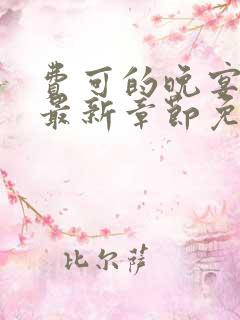 费可的晚宴
最新章节免
比尔萨